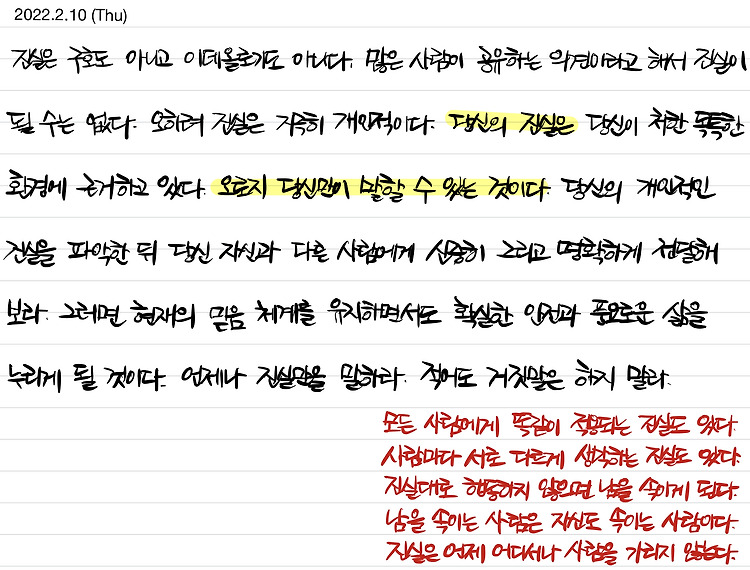 2022.2.10 (Thu)
진실은 구호도 아니고 이데올로기도 아니다. 많은 사람이 공유하는 의견이라고 해서 진실이
될 수는 없다. 오히려 진실은 지극히 개인적이다. 당신의 진실은 당신이 처한 독특한
환경에 근거하고 있다. 오로지 당신만이 말할 수 있는 것이다. 당신의 개인적인
진실을 파악한 뒤 당신 자신과 다른 사람에게 신중히 그리고 명확하게 전달해
보라. 그러면 현재의 믿음 체계를 유지하면서도 확실한 안전과 풍요로운 삶을
누리게 될 것이다. 언제나 진실만을 말하라. 적어도 거짓말은 하지 말라.
모든 사람에게 똑같이 적용되는 진실도 있다.
사람마다 서로 다르게 생각하는 진실도 있다.
진실대로 행동하지 않으면 남을 속이게 된다.
남을 속이는 사람은 자신도 속이는 사람이다.
진실은 언제 어디서나 사람을 가리지 않는다.